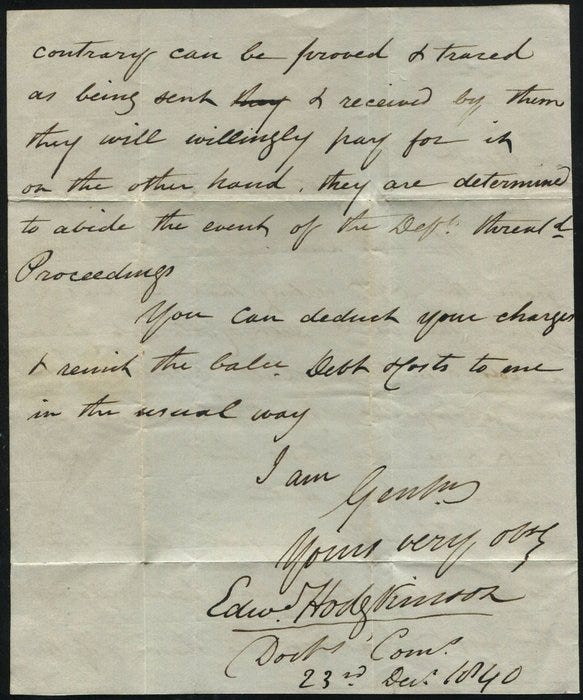 contrary can be proved & traced
as being sent they & received by them
they will willingly pay for it
on the other hand, they are determined
to abide the event of the Deft. threatd
Proceedings
You can deduct your charges
& remit the balce Debt & Costs to me
in the usual way
I am
Gentn
Yours very obt
Edwd. Hodgkinson
Docts' Coms.
23rd Decr. 1840